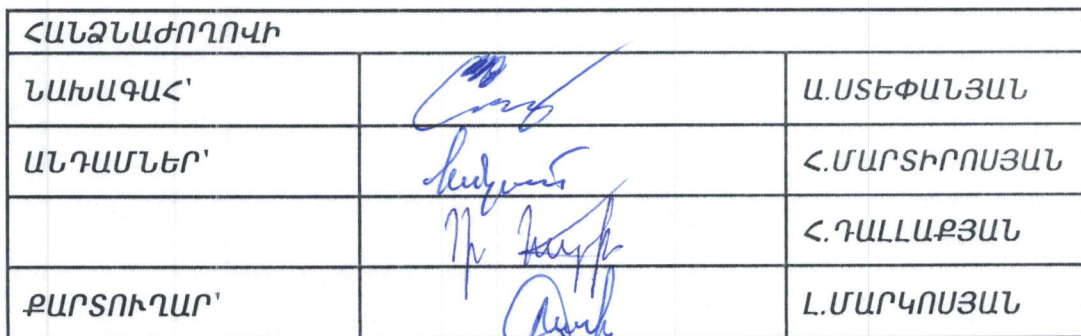 ՀԱՆՁՆԱԺՈՂՈՎԻ
ՆԱԽԱԳԱՀ՝ Ա.ՍՏԵՓԱՆՅԱՆ
ԱՆԴԱՄՆԵՐ՝ Հ.ՄԱՐՏԻՐՈՍՅԱՆ
Հ.ԴԱԼԼԱՔՅԱՆ
ՔԱՐՏՈՒՂԱՐ՝ Լ.ՄԱՐԿՈՍՅԱՆ